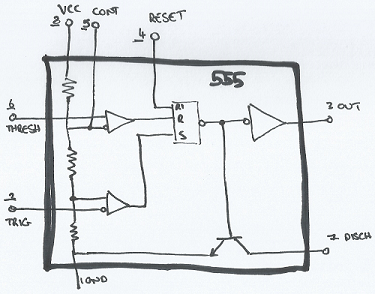 8 VCC
5 CONT
4 RESET
555
6 THRESH
R1
R
S
3 OUT
2 TRIG
7 DISCH
1 GND